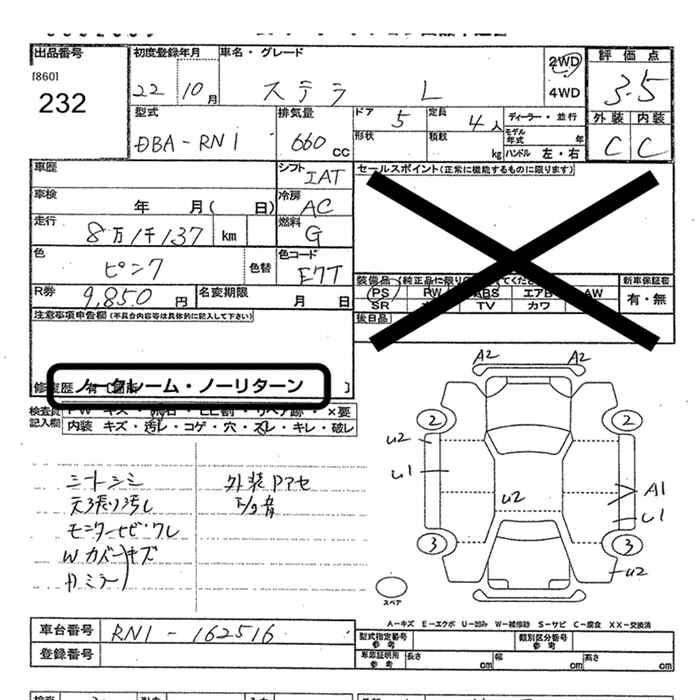 出品番号 初度登録年月 車名・グレード 2WD 評価点
[860] 22 10月 ステラ L 4WD 3.5
232 型式 排気量 ドア 5 定員 4人 ディーラー・並行 外装 内装
DBA-RN1 660 CC 形状 積数 kg モデル年式 年 ハンドル 左・右 C C
車歴 シフト IAT セールスポイント(正常に機能するものに限ります)
車検 年 月( 日) 冷房 AC
走行 8万1千137 km 燃料 G
色 ピンク 色替 色コード E7T
装備品 新車保証書
R券 9,850円 名変期限 月 日 PS PW ABS エアB AW 有・無
SR TV カワ
注意事項申告欄(不具合内容等は具体的に記入して下さい) 後日品
ノークレーム・ノーリターン
検査員記入欄
内装 キズ・汚レ・コゲ・穴・スレ・キレ・破レ
A2 A2
2 2
u2
シートシミ 外装Pアセ u1 u2 A1
天張り汚レ 下サビ u1
モニターヒビ・ワレ
Wカバーキズ 3 3
Dミラー u2
スペア
A-キズ E-エクボ U-凹み W-補修跡 S-サビ C-腐食 XX-交換済
車台番号 RN1-162516 型式指定番号 参考 類別区分番号 参考
登録番号 車庫証明用 参考 長さ cm 幅 cm 高さ cm